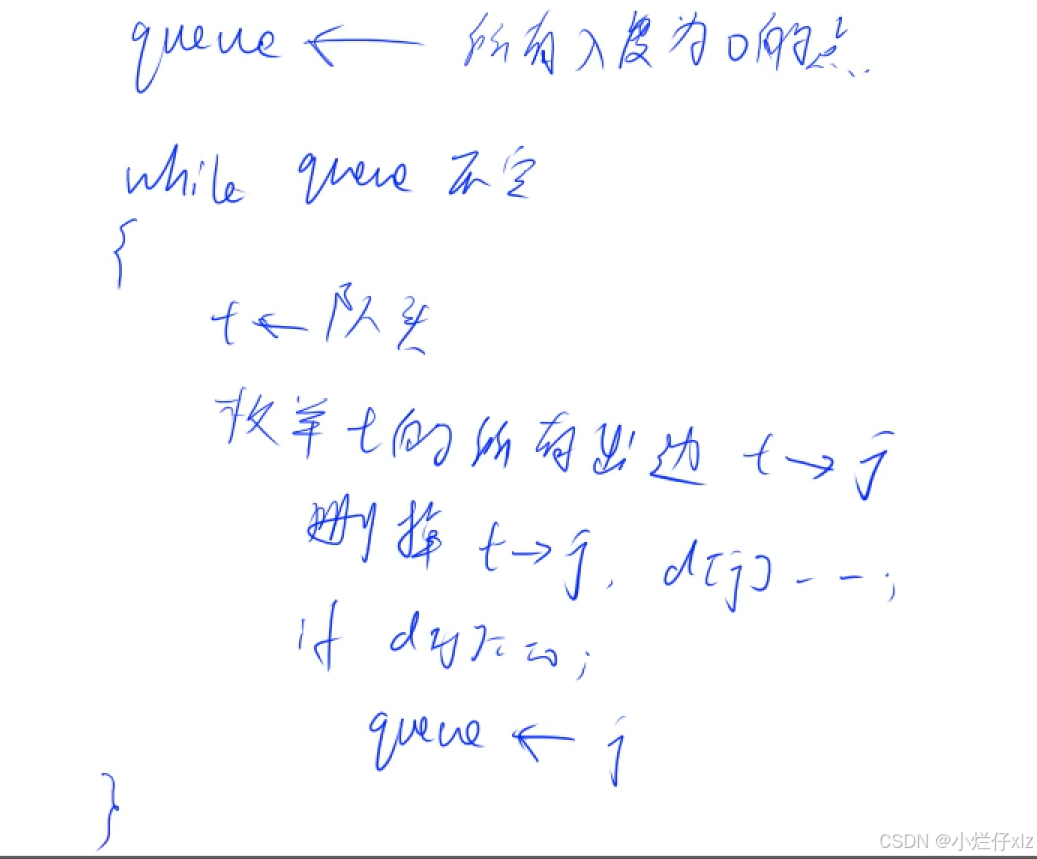 queue ← 所有入度为0的点
while queue 不空
{
t ← 队头
枚举 t 的所有出边 t → j
删掉 t → j, d[j]--;
if d[j]==0;
queue ← j
}
CSDN @小烂仔xlz